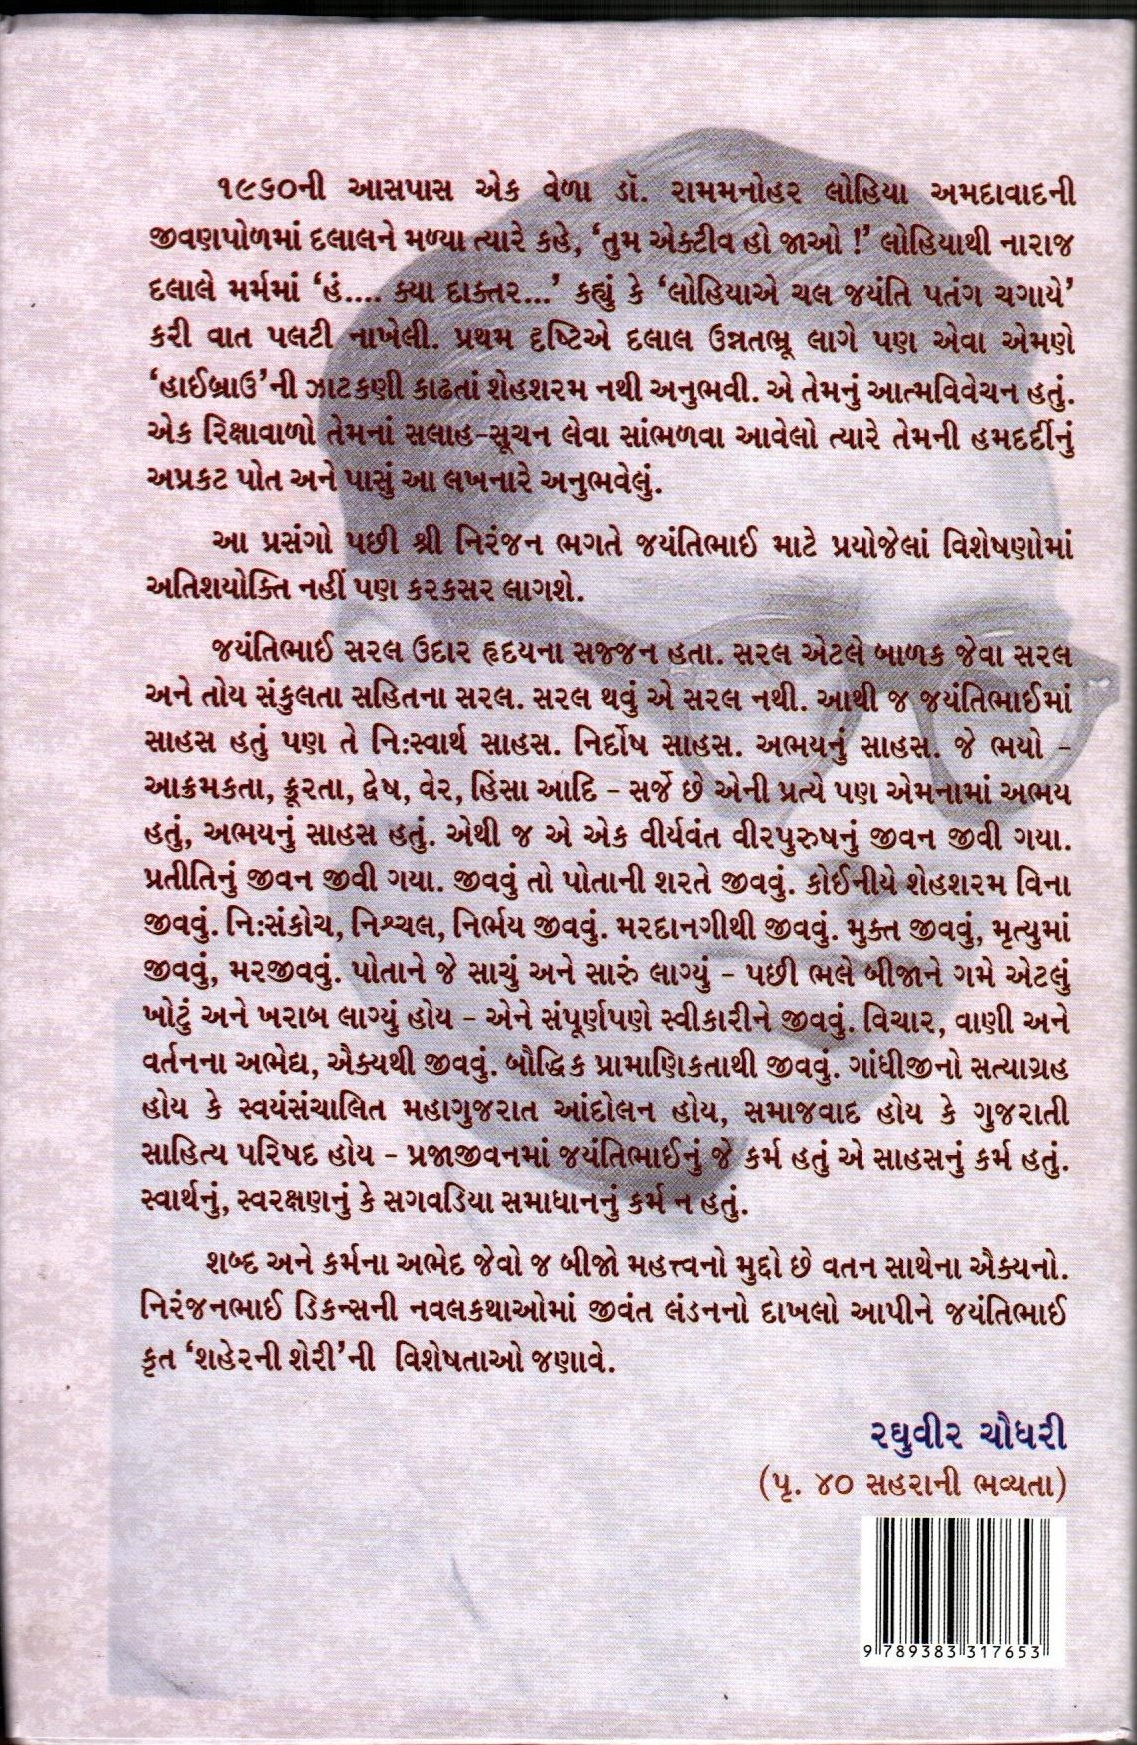 ૧૯૬૦ની આસપાસ એક વેળા ડૉ. રામમનોહર લોહિયા અમદાવાદની
જીવણપોળમાં દલાલને મળ્યા ત્યારે કહે, ‘તુમ એક્ટીવ હો જાઓ !’ લોહિયાથી નારાજ
દલાલે મર્મમાં ‘હં.... ક્યા દાક્તર...’ કહ્યું કે ‘લોહિયાએ ચલ જયંતિ પતંગ ચગાયે’
કરી વાત પલટી નાખેલી. પ્રથમ દૃષ્ટિએ દલાલ ઉન્નતભ્રૂ લાગે પણ એવા એમણે
‘હાઈબ્રાઉ’ની ઝાટકણી કાઢતાં શેહશરમ નથી અનુભવી. એ તેમનું આત્મવિવેચન હતું.
એક રિક્ષાવાળો તેમનાં સલાહ-સૂચન લેવા સાંભળવા આવેલો ત્યારે તેમની હમદર્દીનું
અપ્રકટ પોત અને પાસું આ લખનારે અનુભવેલું.
આ પ્રસંગો પછી શ્રી નિરંજન ભગતે જયંતિભાઈ માટે પ્રયોજેલાં વિશેષણોમાં
અતિશયોક્તિ નહીં પણ કરકસર લાગશે.
જયંતિભાઈ સરલ ઉદાર હૃદયના સજ્જન હતા. સરલ એટલે બાળક જેવા સરલ
અને તોય સંકુલતા સહિતના સરલ. સરલ થવું એ સરલ નથી. આથી જ જયંતિભાઈમાં
સાહસ હતું પણ તે નિઃસ્વાર્થ સાહસ. નિર્દોષ સાહસ. અભયનું સાહસ. જે ભયો –
આક્રમકતા, ક્રૂરતા, દ્વેષ, વેર, હિંસા આદિ – સર્જે છે એની પ્રત્યે પણ એમનામાં અભય
હતું, અભયનું સાહસ હતું. એથી જ એ એક વીર્યવંત વીરપુરુષનું જીવન જીવી ગયા.
પ્રતીતિનું જીવન જીવી ગયા. જીવવું તો પોતાની શરતે જીવવું. કોઈનીયે શેહશરમ વિના
જીવવું. નિઃસંકોચ, નિશ્ચલ, નિર્ભય જીવવું. મરદાનગીથી જીવવું. મુક્ત જીવવું, મૃત્યુમાં
જીવવું, મરજીવવું. પોતાને જે સાચું અને સારું લાગ્યું – પછી ભલે બીજાને ગમે એટલું
ખોટું અને ખરાબ લાગ્યું હોય – એને સંપૂર્ણપણે સ્વીકારીને જીવવું. વિચાર, વાણી અને
વર્તનના અભેદ્ય, ઐક્યથી જીવવું. બૌદ્ધિક પ્રામાણિકતાથી જીવવું. ગાંધીજીનો સત્યાગ્રહ
હોય કે સ્વયંસંચાલિત મહાગુજરાત આંદોલન હોય, સમાજવાદ હોય કે ગુજરાતી
સાહિત્ય પરિષદ હોય – પ્રજાજીવનમાં જયંતિભાઈનું જે કર્મ હતું એ સાહસનું કર્મ હતું.
સ્વાર્થનું, સ્વરક્ષણનું કે સગવડિયા સમાધાનનું કર્મ ન હતું.
શબ્દ અને કર્મના અભેદ જેવો જ બીજો મહત્ત્વનો મુદ્દો છે વતન સાથેના ઐક્યનો.
નિરંજનભાઈ ડિકન્સની નવલકથાઓમાં જીવંત લંડનનો દાખલો આપીને જયંતિભાઈ
કૃત ‘શહેરની શેરી’ની વિશેષતાઓ જણાવે.
રઘુવીર ચૌધરી
(પૃ. ૪૦ સહરાની ભવ્યતા)
9 789383 317653